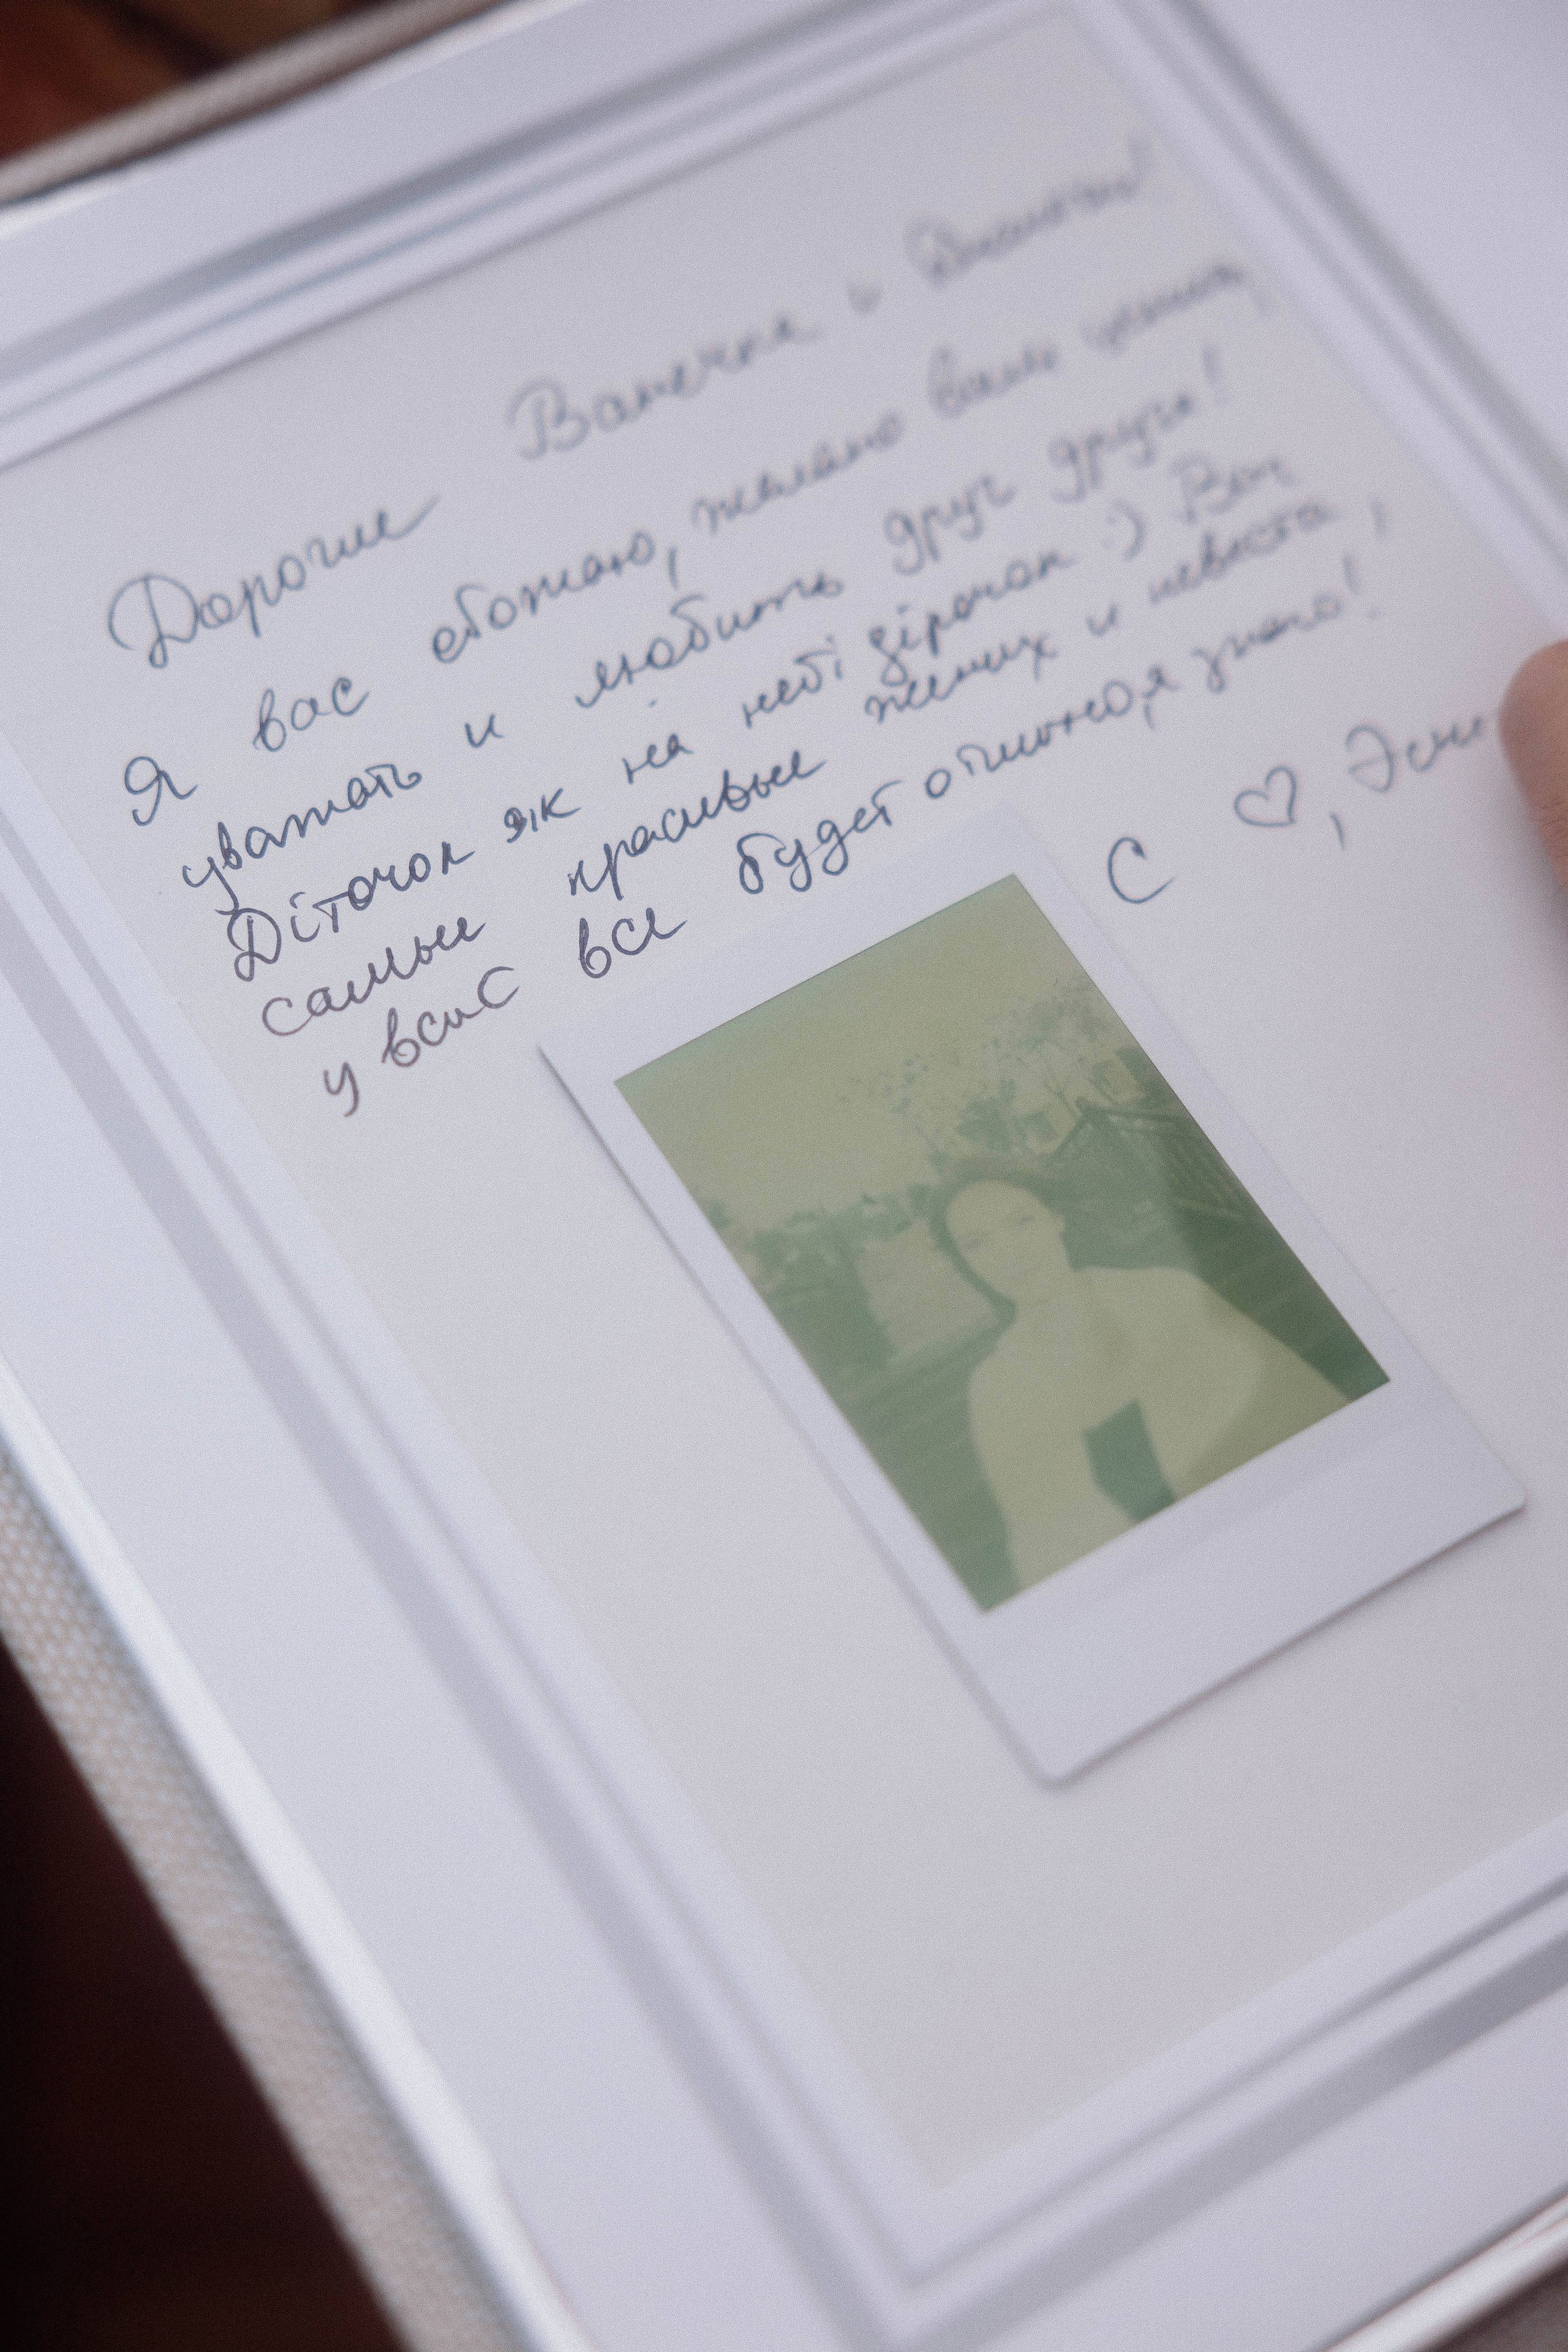 Дорогие Ванечка и
Я вас обожаю, желаю вам
уважать и любить друг друга!
Діточок як на небі зірочок :) Вы
самые красивые жених и невеста,
у вас все будет отлично, я знаю!
С ♡,